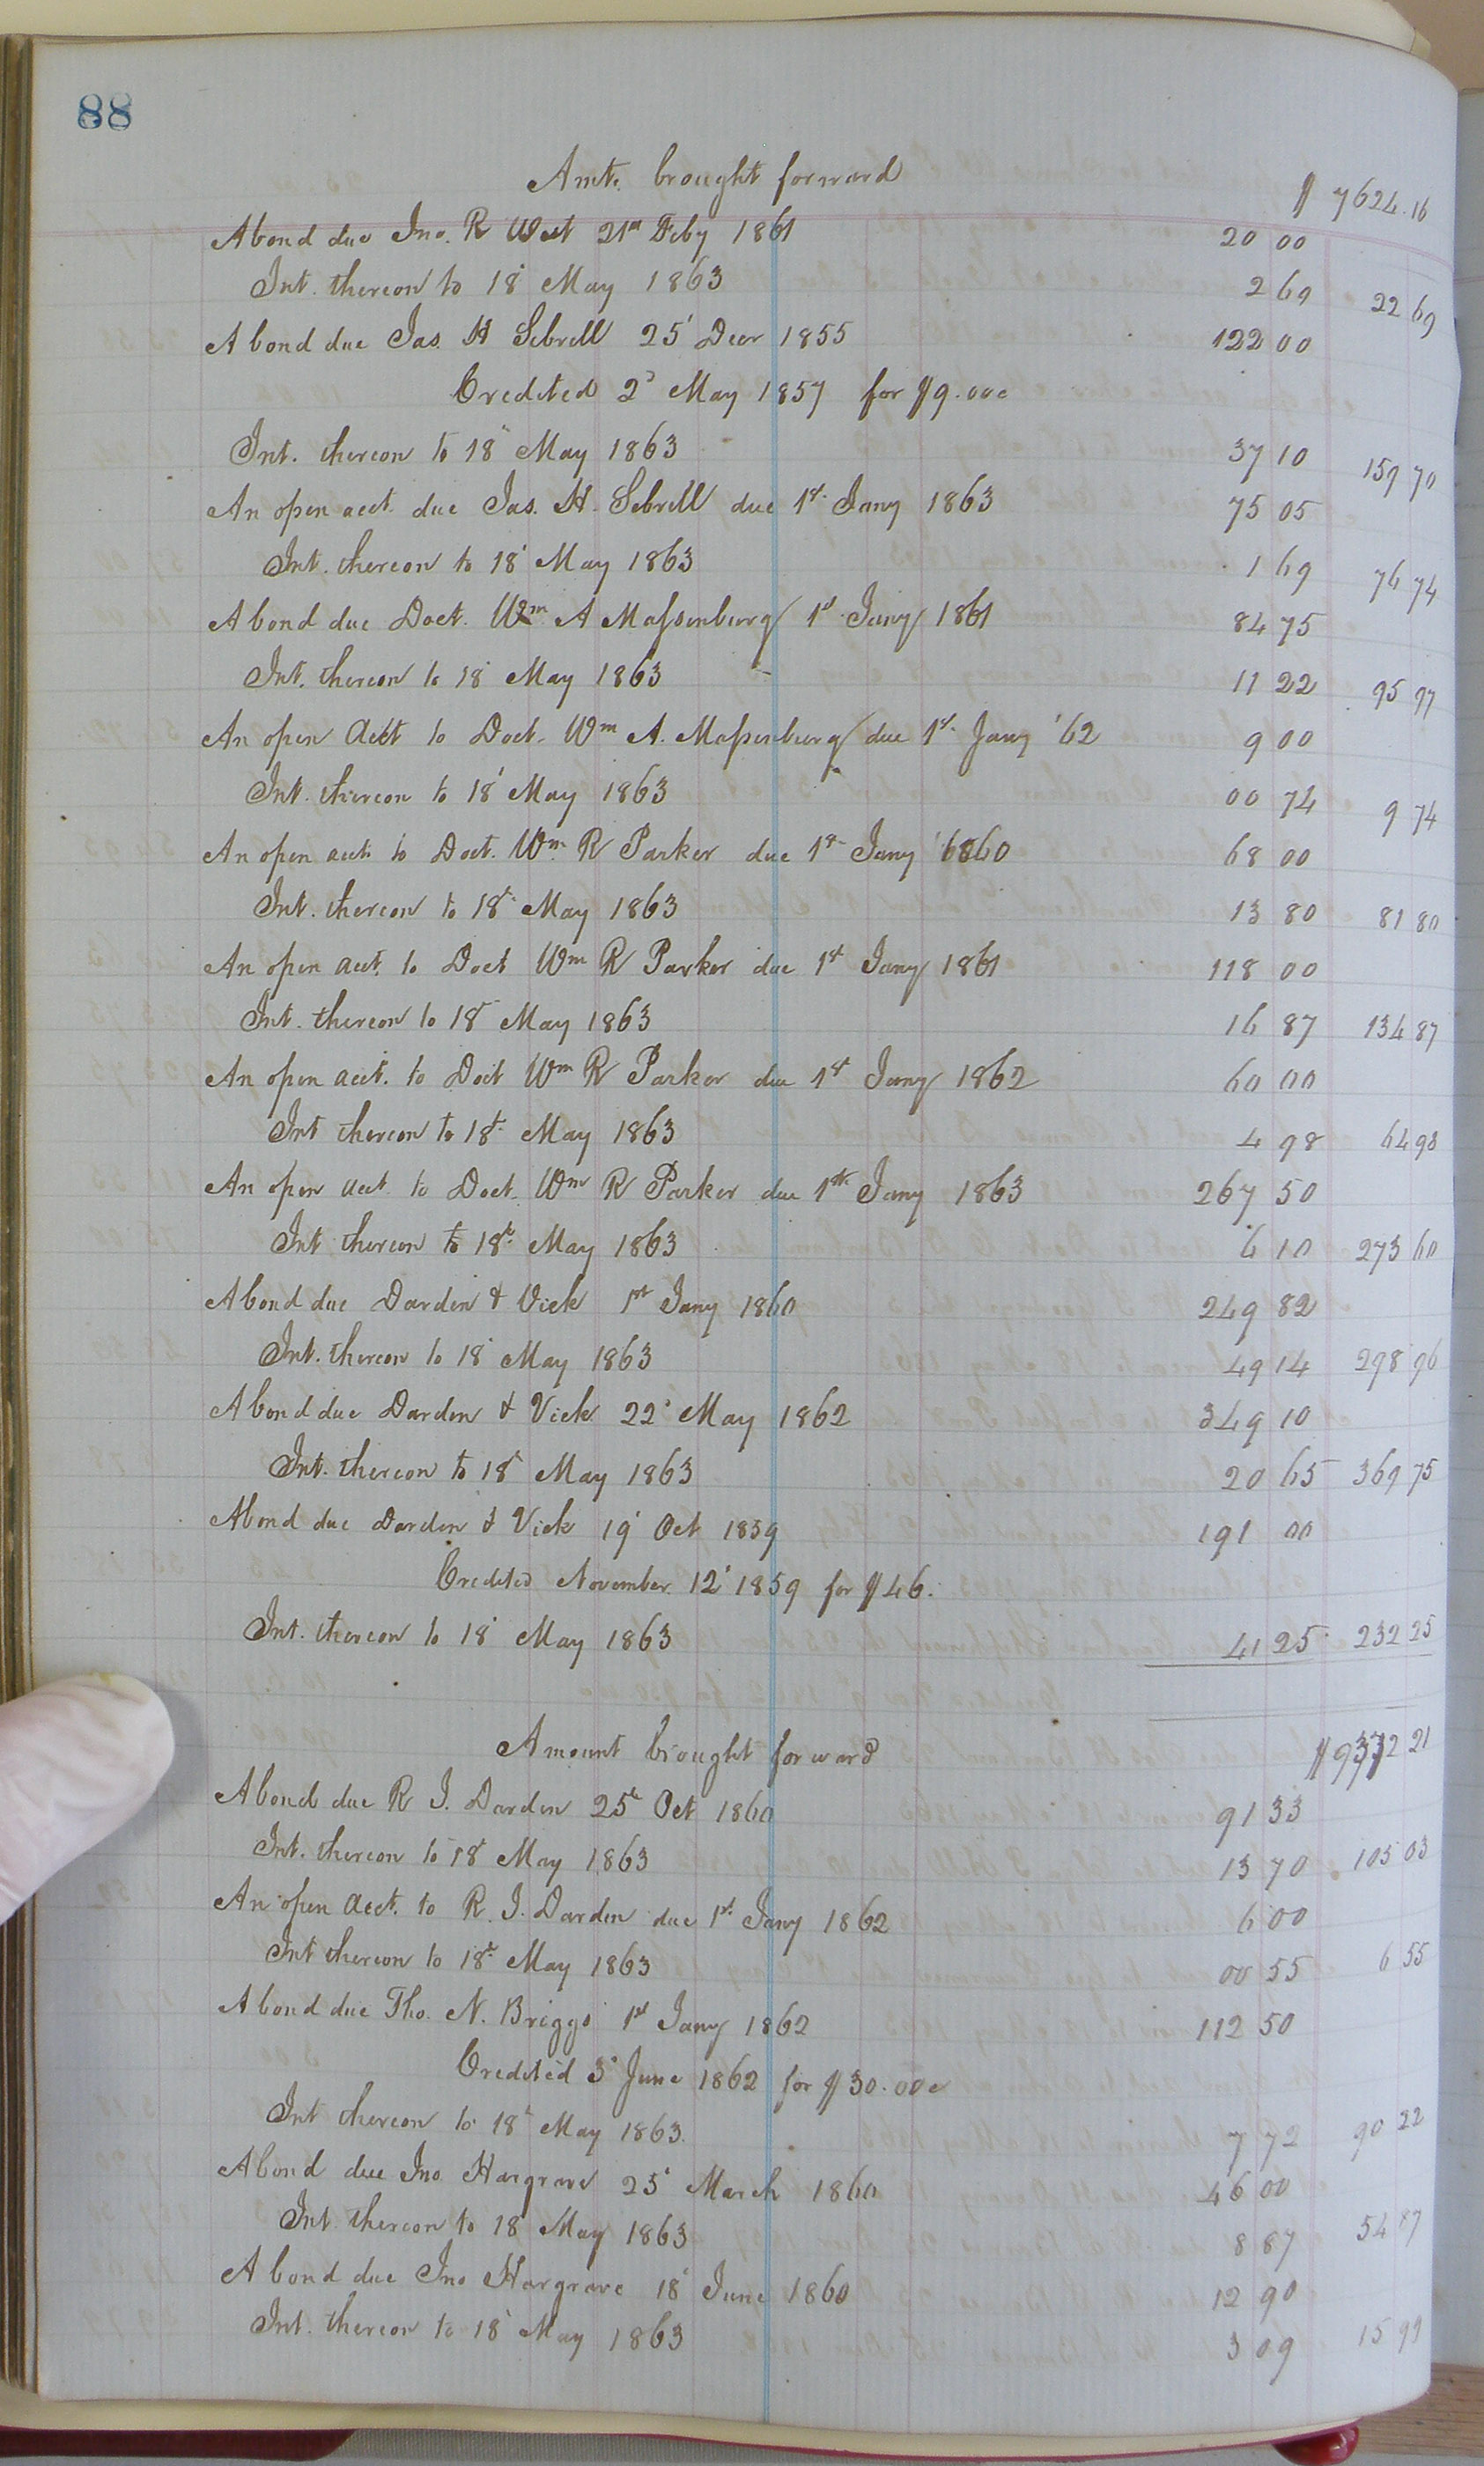 88
Amts. brought forward $ 7624.16
A bond due Jno. R West 21st Feby 1861 20 00
Int. thereon to 18 May 1863 2 69 22 69
A bond due Jas. H Sebrell 25 Decr 1855 122 00
Credited 2d May 1857 for $9.00c
Int. thereon to 18 May 1863 37 10 159 70
An open acct. due Jas. H. Sebrell due 1st Jany 1863 75 05
Int. thereon to 18 May 1863 1 69 76 74
A bond due Doct. Wm A Massenburg 1st Jany 1861 84 75
Int. thereon to 18 May 1863 11 22 95 97
An open Acct to Doct. Wm A. Massenburg due 1st Jany '62 9 00
Int. thereon to 18 May 1863 00 74 9 74
An open acct. to Doct. Wm R Parker due 1st Jany 1860 68 00
Int. thereon to 18t May 1863 13 80 81 80
An open acct. to Doct Wm R Parker due 1st Jany 1861 118 00
Int. thereon to 18t May 1863 16 87 134 87
An open acct. to Doct Wm R Parker due 1st Jany 1862 60 00
Int thereon to 18t May 1863 4 98 64 98
An open acct to Doct. Wm R Parker due 1st Jany 1863 267 50
Int thereon to 18t May 1863 6 10 273 60
A bond due Darden & Vick 1st Jany 1860 249 82
Int. thereon to 18 May 1863 49 14 298 96
A bond due Darden & Vick 22 May 1862 349 10
Int. thereon to 18t May 1863 20 65 369 75
A bond due Darden & Vick 19 Oct 1859 191 00
Credited November 12 1859 for $46.
Int. thereon to 18 May 1863 41 25 232 25
Amount brought forward $ 21
A bond due R J. Darden 25t Oct 1860 91 33
Int. thereon to 18t May 1863 13 70 105 03
An open acct. to R. J. Darden due 1st Jany 1862 6 00
Int thereon to 18t May 1863 00 55 6 55
A bond due Tho. N. Briggs 1st Jany 1862 112 50
Credited 3 June 1862 for $30.00c
Int thereon to 18t May 1863. 7 72 90 22
A bond due Jno. Hargrave 25 March 1860 46 00
Int. thereon to 18 May 1863 8 87 54 87
A bond due Jno Hargrave 18 June 1860 12 90
Int. thereon to 18 May 1863 3 09 15 99